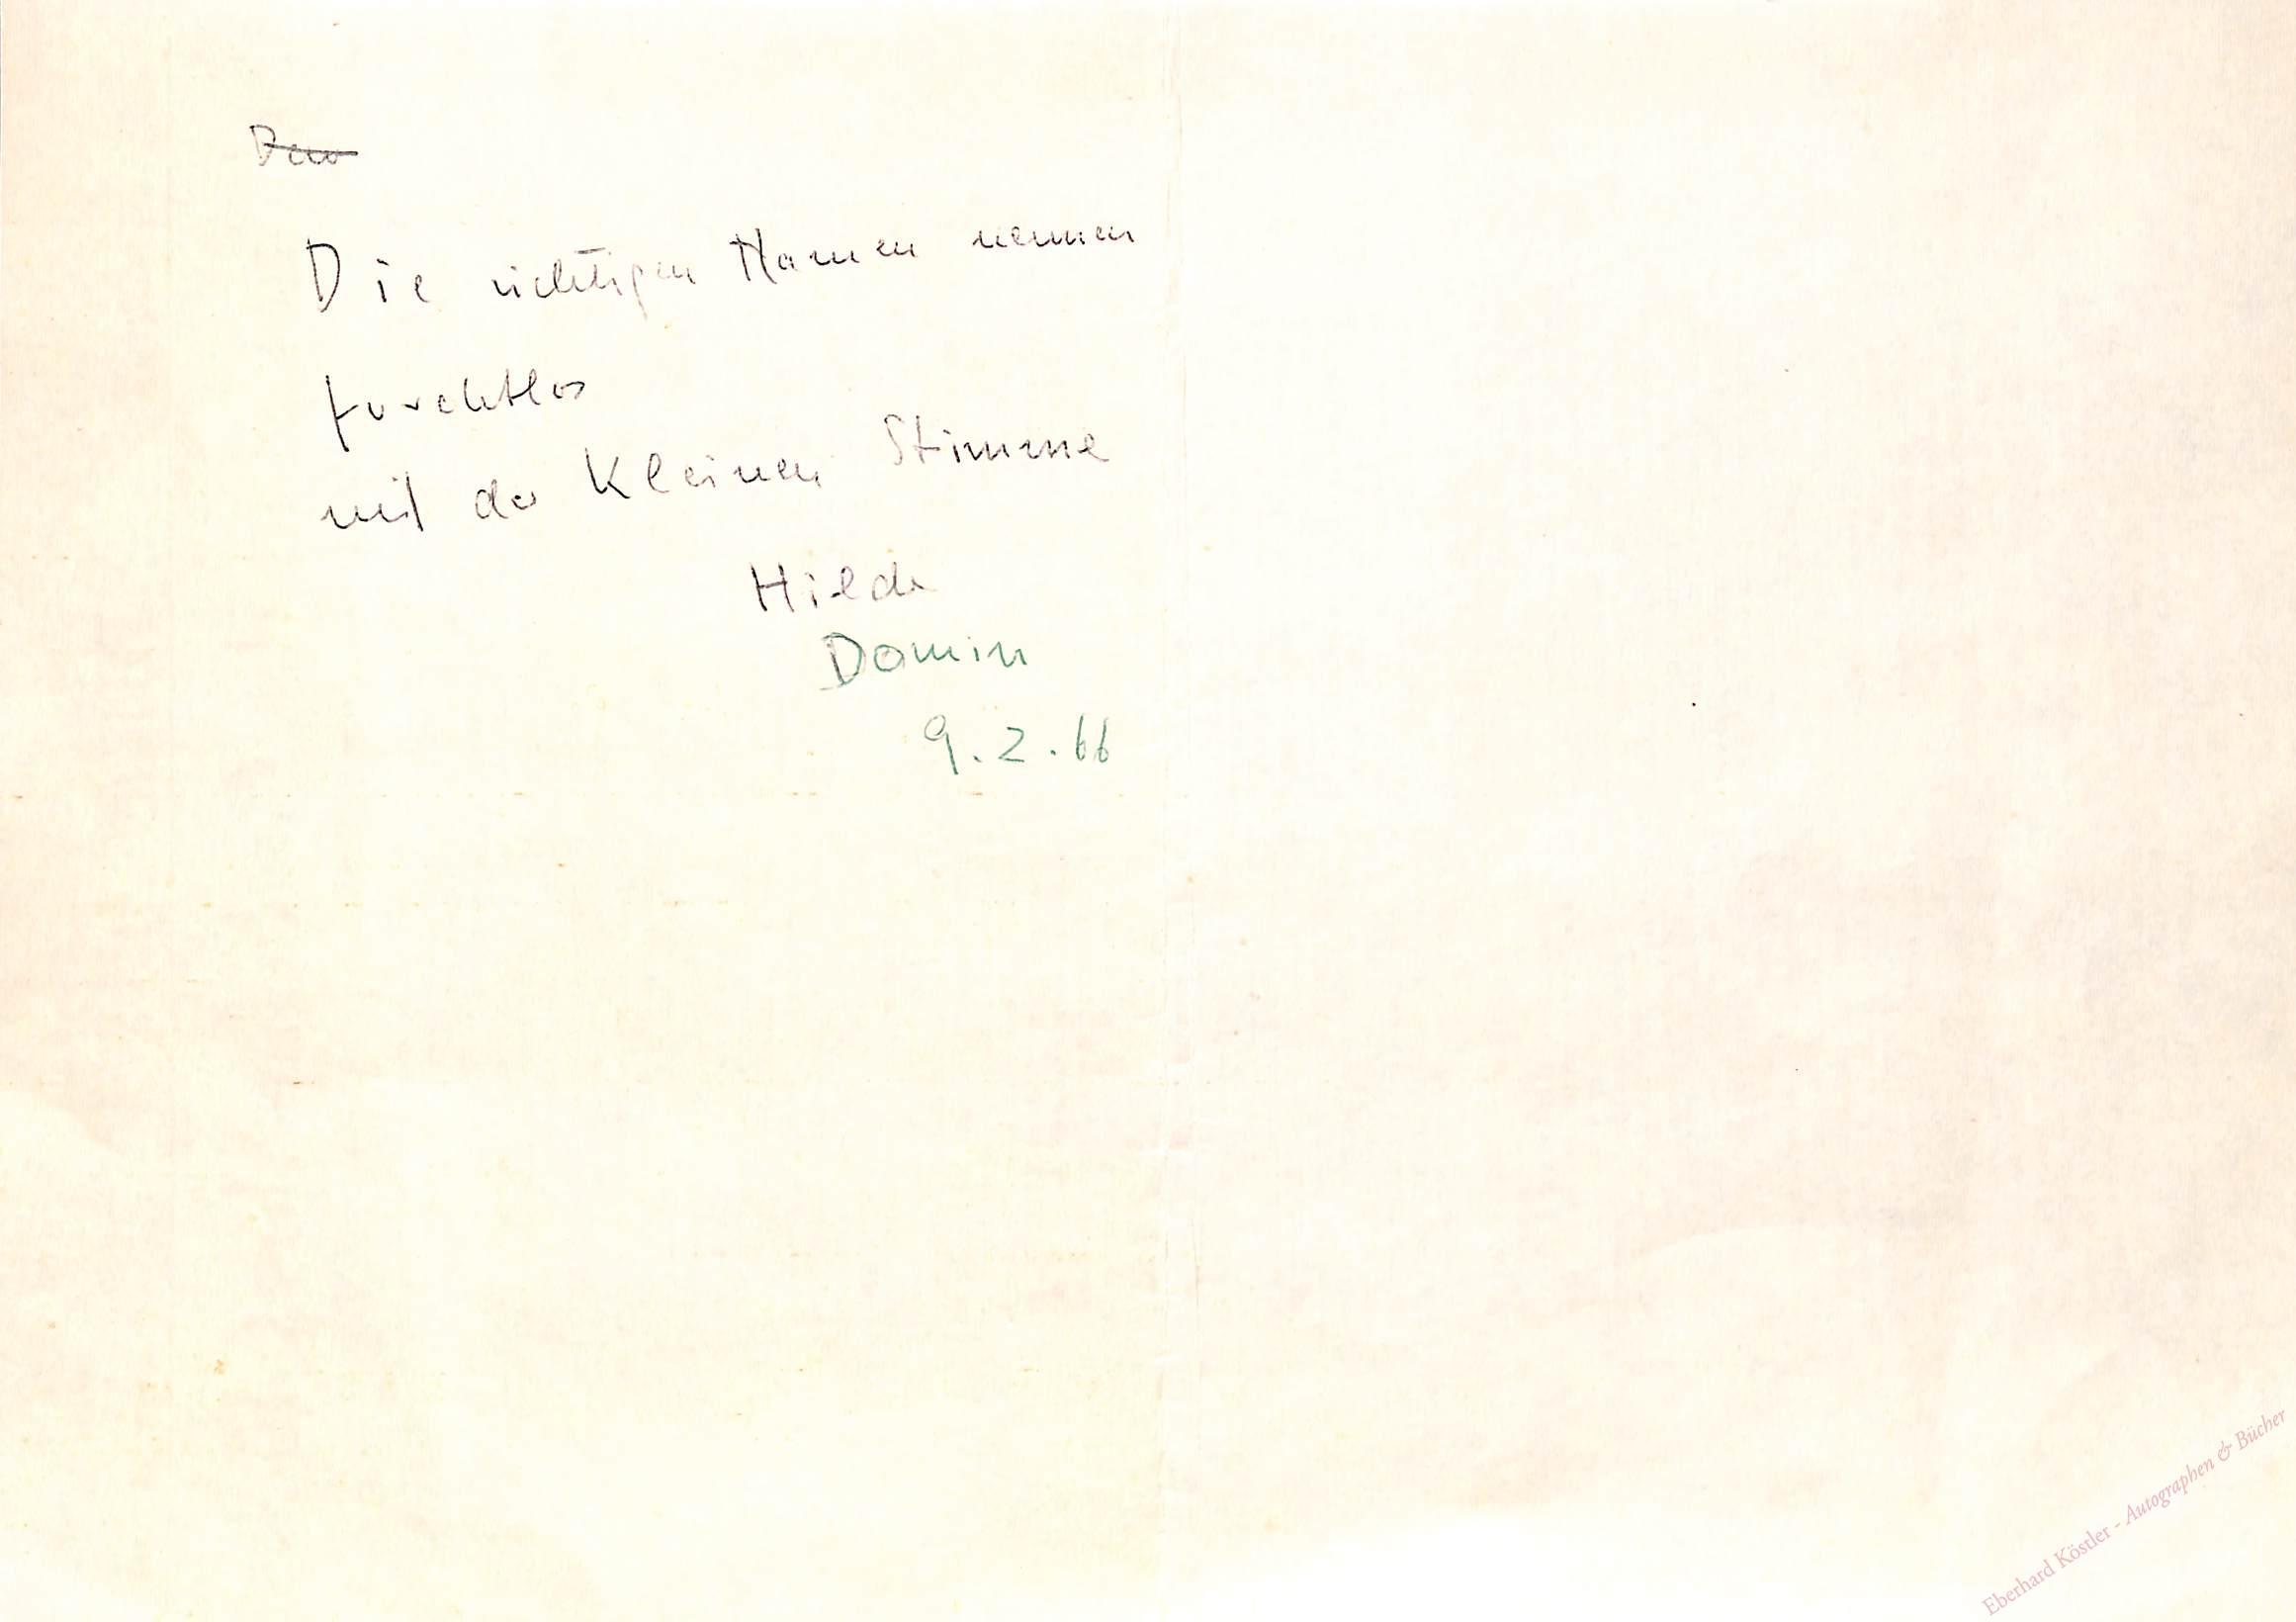 Die richtigen Namen nennen
furchtlos
mit der kleinen Stimme
Hilde
Domin
9.2.66
Eberhard Köstler - Autographen & Bücher